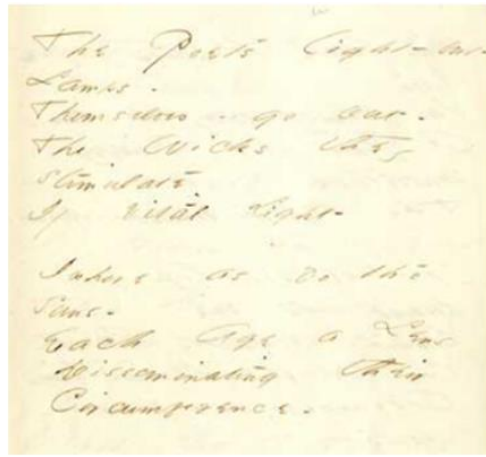 The Poets light but
Lamps -
Themselves - go out -
The Wicks they
stimulate
If vital Light -
Inhere as do the
Suns -
Each Age a Lens
Disseminating their
Circumference -